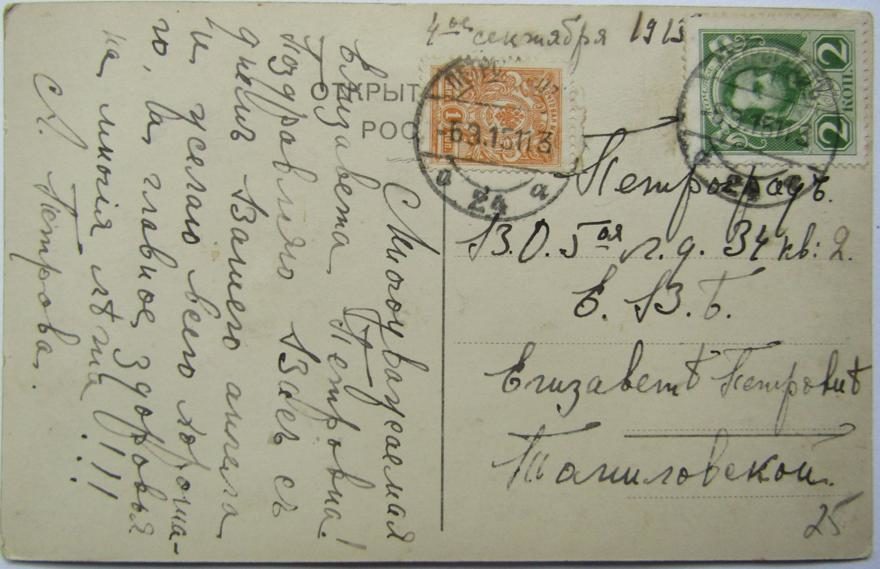 4ое сентября 1915
ОТКРЫТ
РОС
1
2 КОП. 2
-6.9.15 11.3
а 24 а
Петроградъ.
В.О. 5ая л. д. 34 кв: 2.
Е. В. Б.
Елизаветѣ Петровнѣ
25
Многоуважаемая
Елизавета Петровна!
Поздравляю Васъ съ
днемъ Вашего ангела
и желаю всего хороша-
го, а, главное, здоровья
на многія лѣта!!!
А. Петрова.